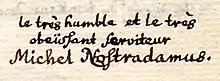 le très humble et le très
obëissant serviteur
Michel Nostradamus.